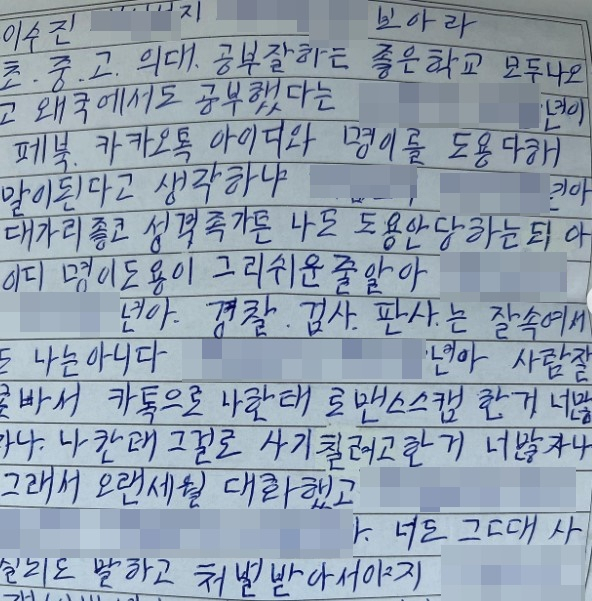 이수진 지 보아라
초.중.고. 의대. 공부잘하는 좋은학교 모두나오
고 왜국에서도 공부했다는 년이
페북. 카카오톡 아이디와 명이를 도용 다해
말이된다고 생각하냐 년아
대가리좋고 성격족가튼 나도 도용안당하는되 아
이디 명이도용이 그리쉬운줄알아
년아. 경찰. 검사. 판사.는 잘속여서
도 나는아니다 년아 사람잘
못바서 카톡으로 나한태 로맨스스캠 한거 너맞
자나. 나한태 그걸로 사기칠려고한거 너맞자나
그래서 오랜세월 대화했고
너도 그대
말하고 처벌받아서야지